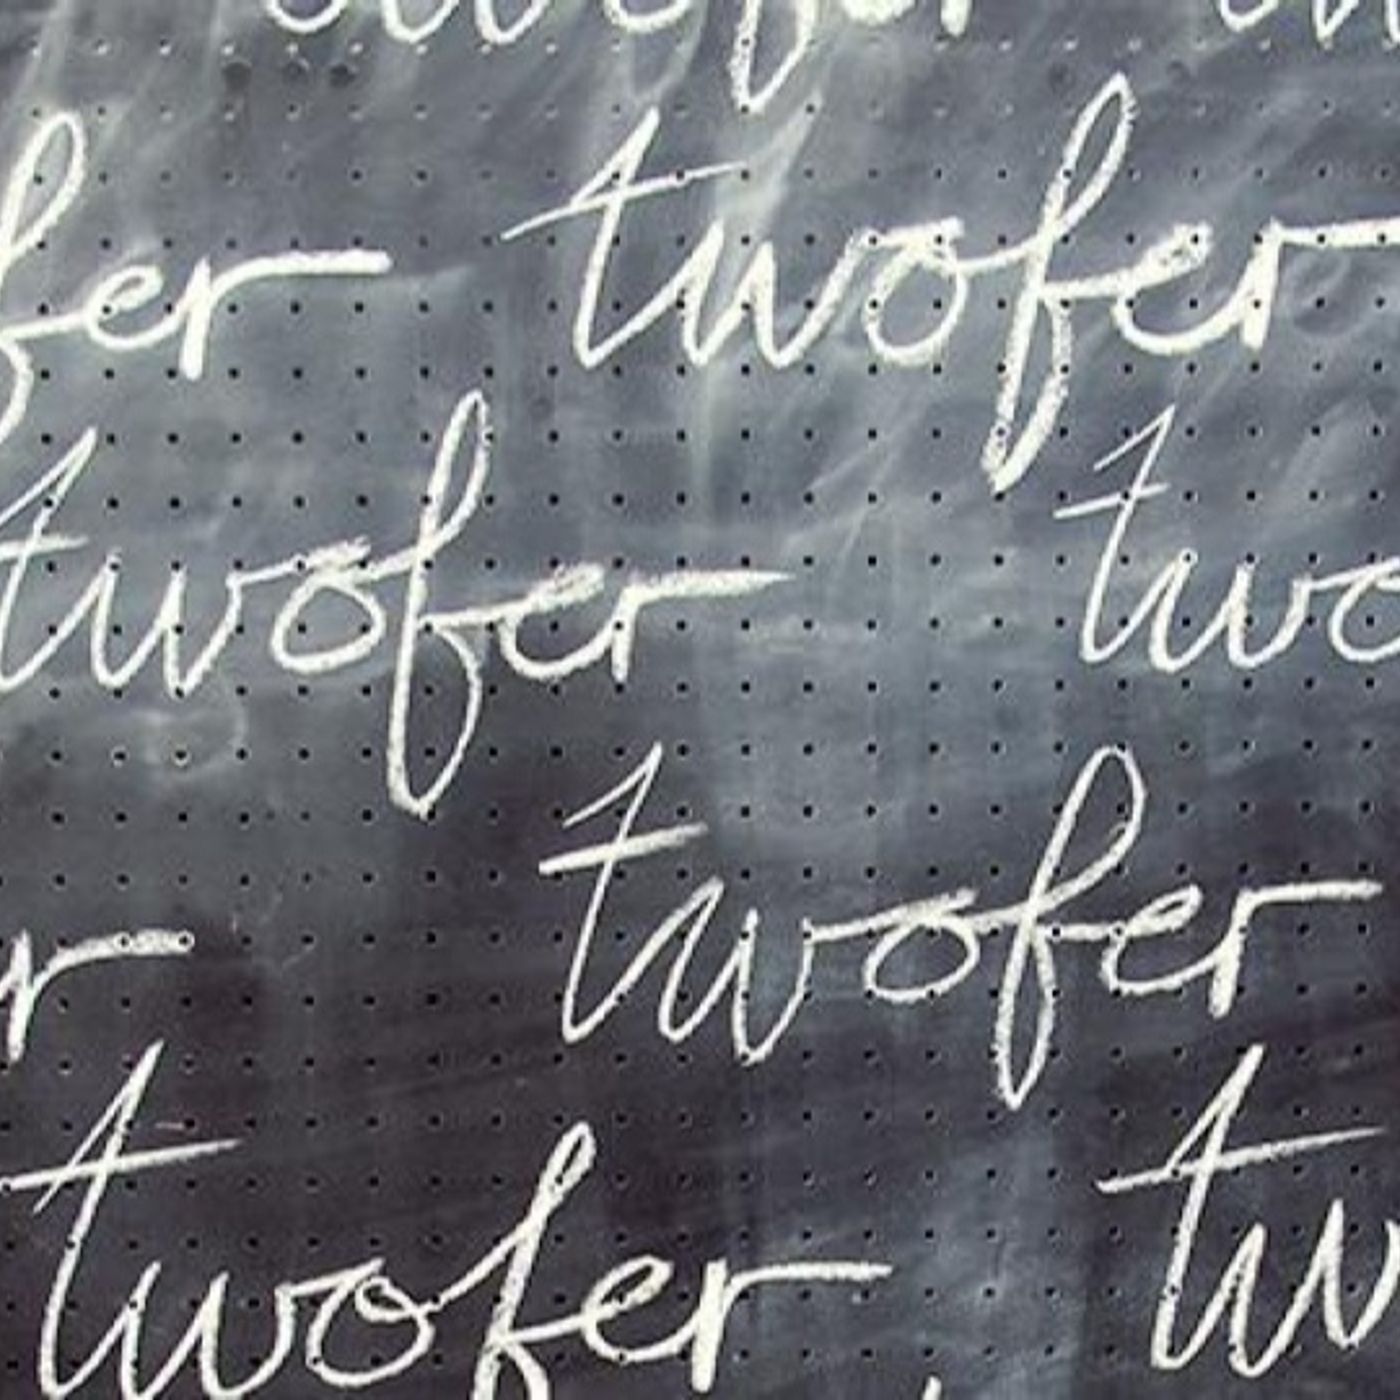 twofer
fer twofer
twofer two
r twofer
twofer tw